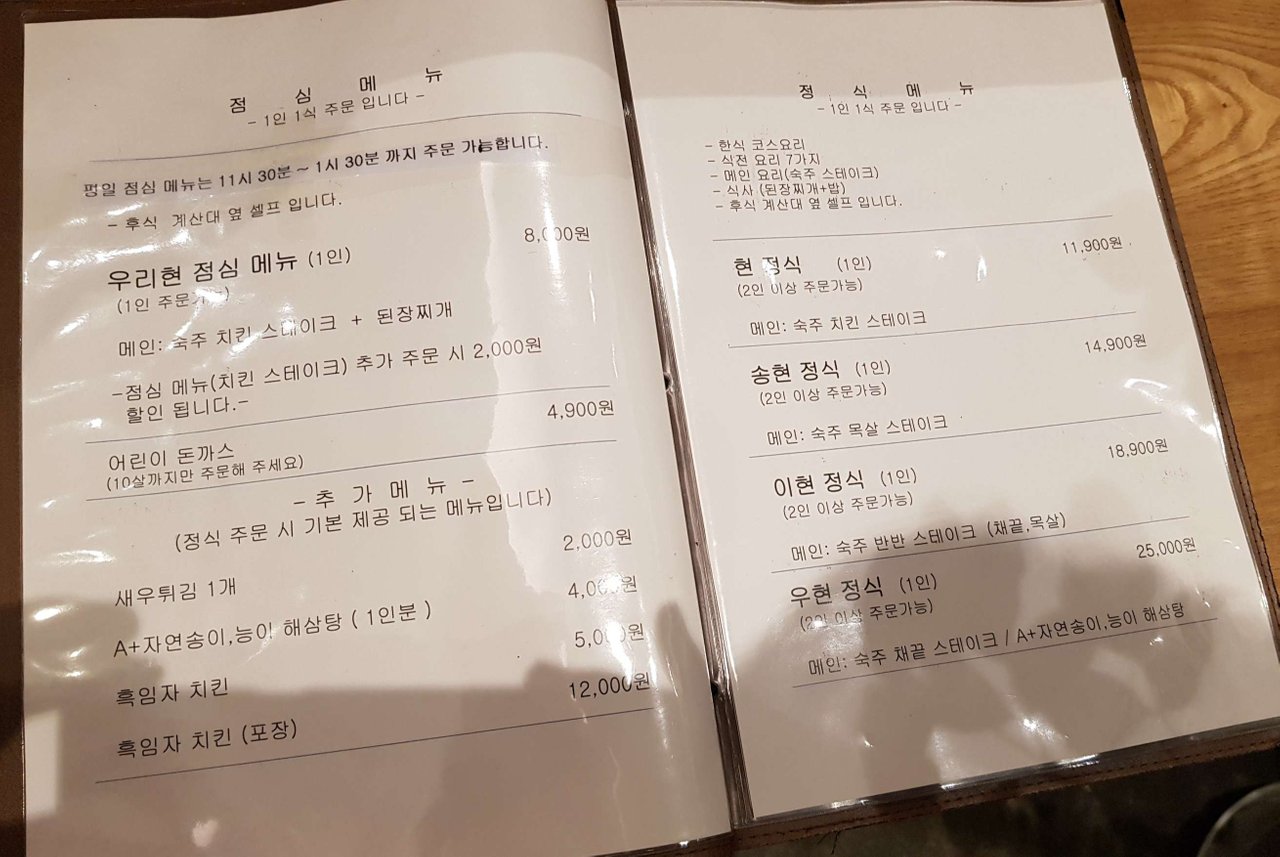 점 심 메 뉴
- 1인 1식 주문 입니다 -
평일 점심 메뉴는 11시 30분 ~ 1시 30분 까지 주문 가능합니다.
- 후식 계산대 옆 셀프 입니다.
8,000원
우리현 점심 메뉴 (1인)
(1인 주문가능)
메인: 숙주 치킨 스테이크 + 된장찌개
-점심 메뉴(치킨 스테이크) 추가 주문 시 2,000원
할인 됩니다.-
4,900원
어린이 돈까스
(10살까지만 주문해 주세요)
- 추 가 메 뉴 -
(정식 주문 시 기본 제공 되는 메뉴입니다)
2,000원
새우튀김 1개
4,000원
A+자연송이,능이 해삼탕 ( 1인분 )
5,000원
흑임자 치킨
12,000원
흑임자 치킨 (포장)
정 식 메 뉴
- 1인 1식 주문 입니다 -
- 한식 코스요리
- 식전 요리 7가지
- 메인 요리(숙주 스테이크)
- 식사 (된장찌개+밥)
- 후식 계산대 옆 셀프 입니다.
11,900원
현 정식 (1인)
(2인 이상 주문가능)
메인: 숙주 치킨 스테이크
14,900원
송현 정식 (1인)
(2인 이상 주문가능)
메인: 숙주 목살 스테이크
18,900원
이현 정식 (1인)
(2인 이상 주문가능)
메인: 숙주 반반 스테이크 (채끝,목살)
25,000원
우현 정식 (1인)
(2인 이상 주문가능)
메인: 숙주 채끝 스테이크 / A+자연송이,능이 해삼탕